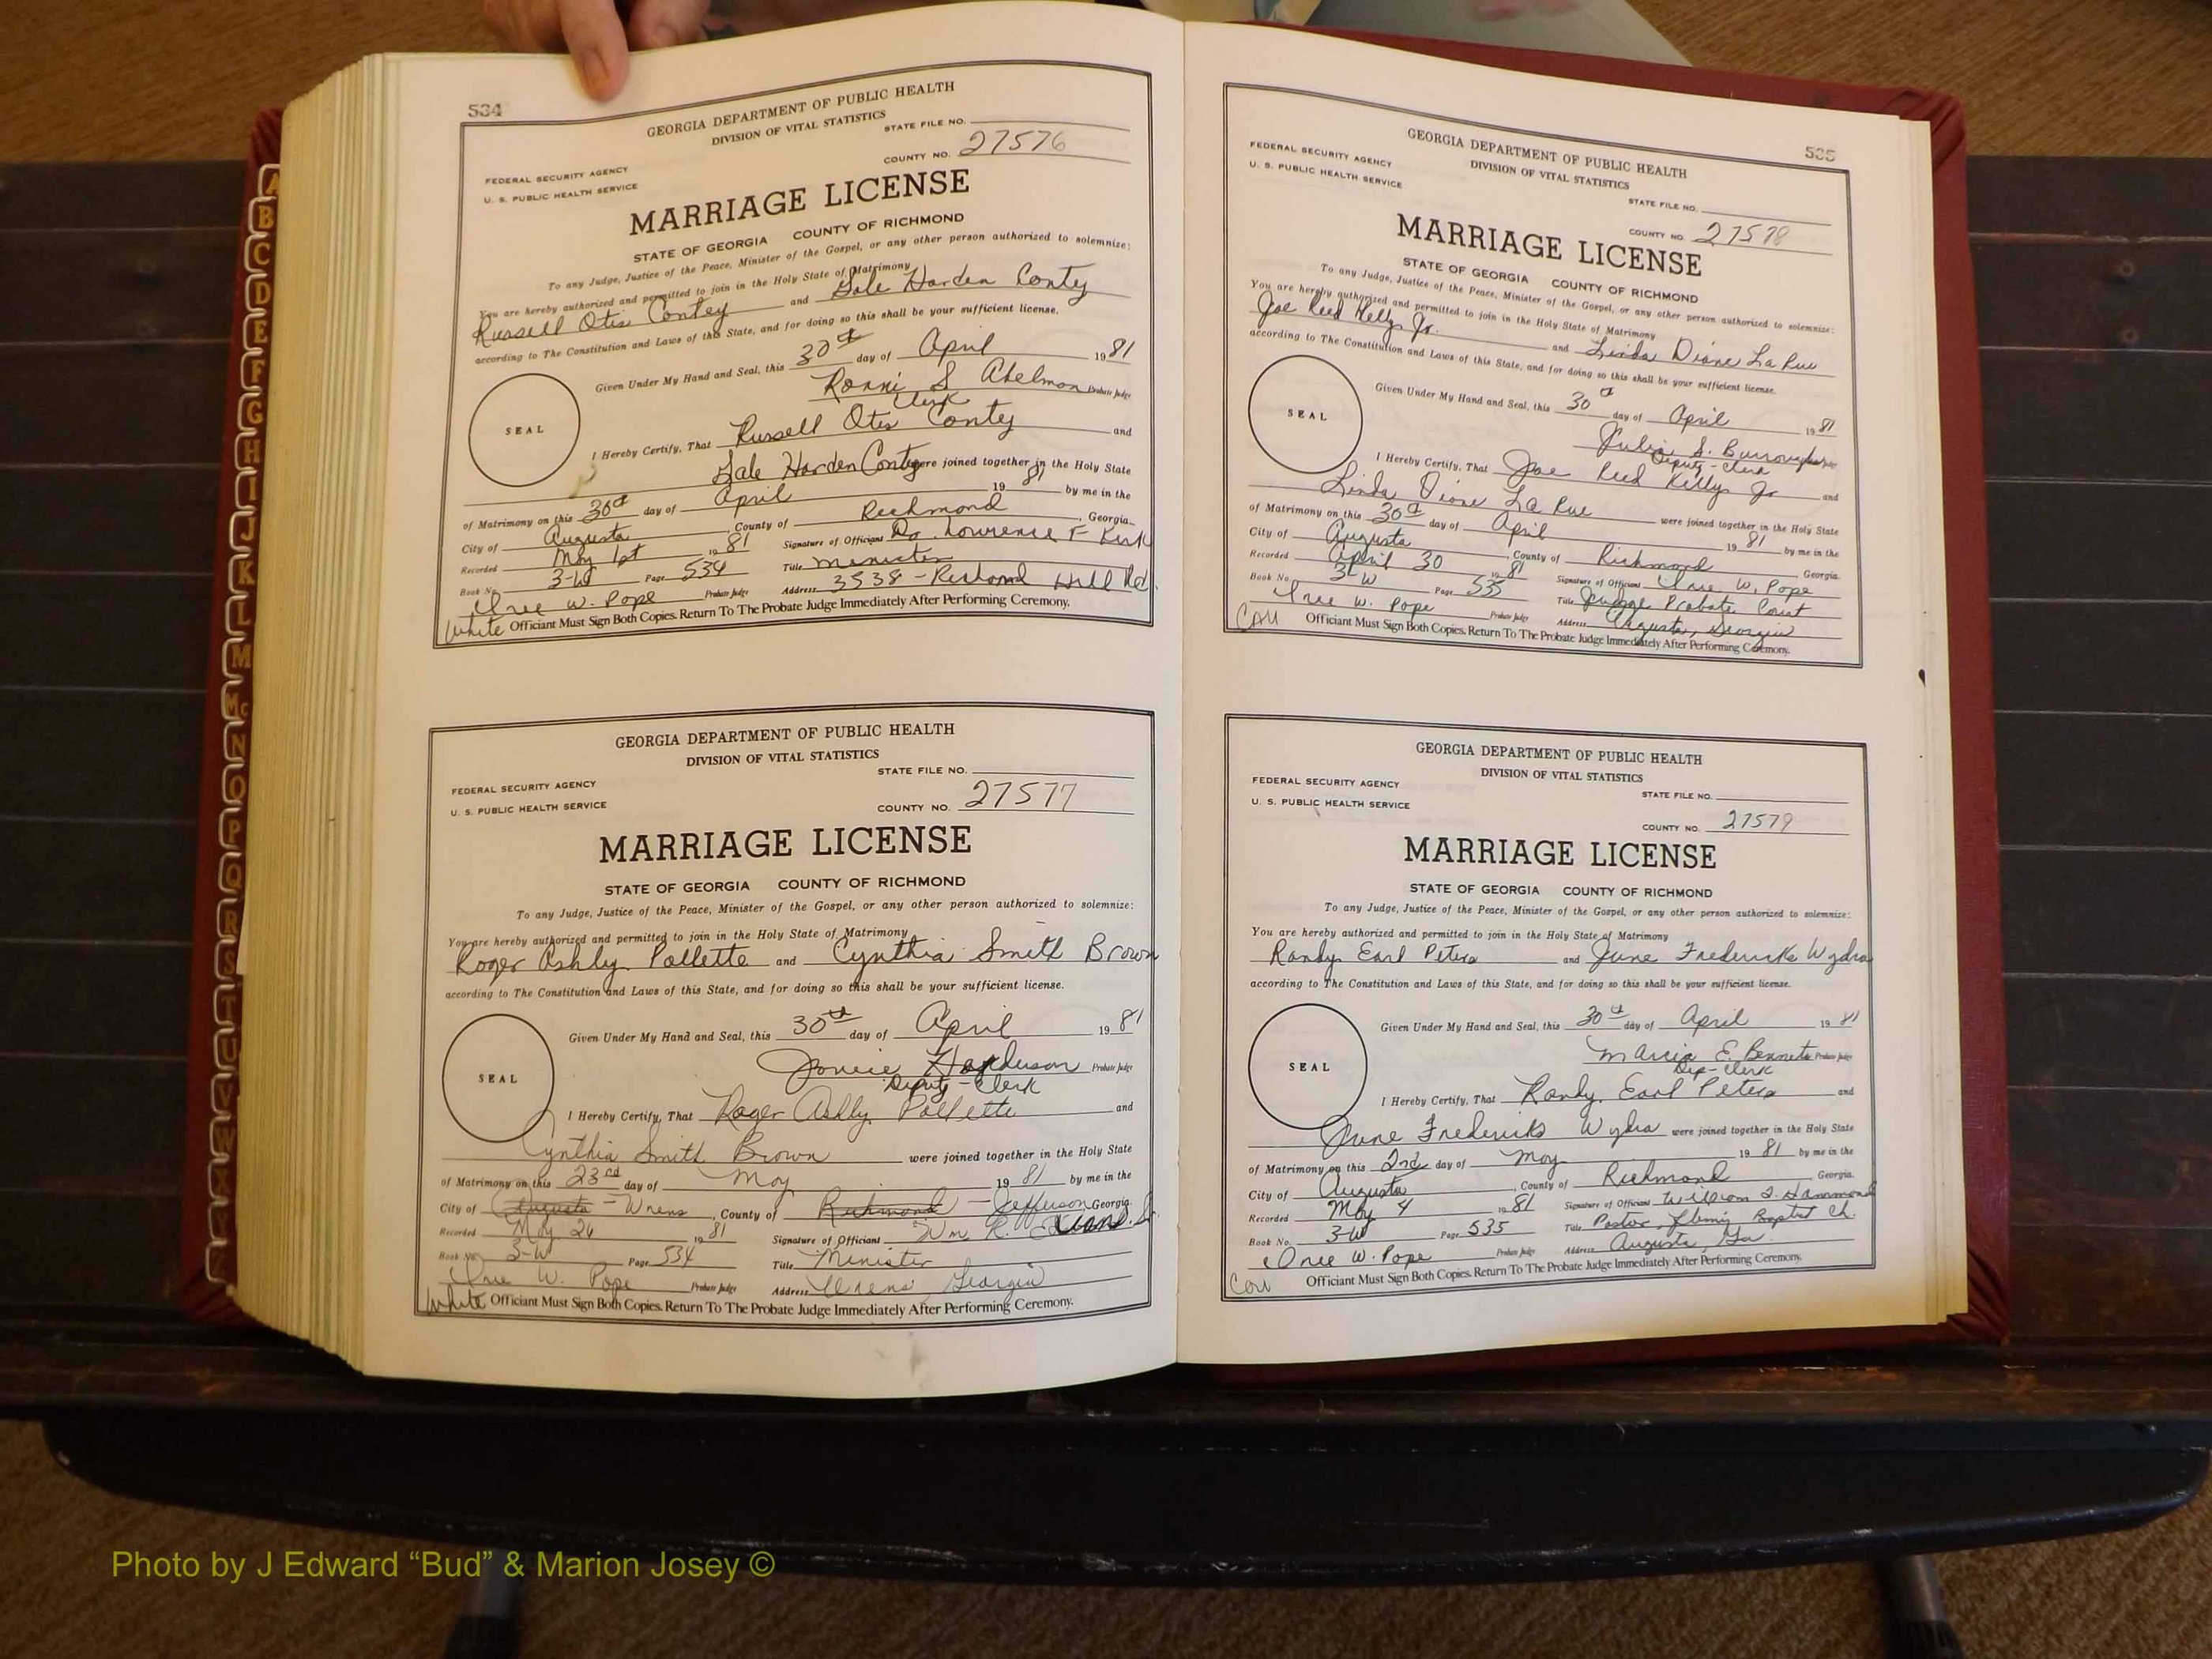 534
GEORGIA DEPARTMENT OF PUBLIC HEALTH
DIVISION OF VITAL STATISTICS
STATE FILE NO.
COUNTY NO. 27576
FEDERAL SECURITY AGENCY
U. S. PUBLIC HEALTH SERVICE
MARRIAGE LICENSE
STATE OF GEORGIA COUNTY OF RICHMOND
To any Judge, Justice of the Peace, Minister of the Gospel, or any other person authorized to solemnize:
You are hereby authorized and permitted to join in the Holy State of Matrimony
Russell Otis Contey and Gale Harden Conty
according to The Constitution and Laws of this State, and for doing so this shall be your sufficient license.
Given Under My Hand and Seal, this 30th day of April 1981
Ronni S Adelman Probate Judge
Clerk
SEAL
I Hereby Certify, That Russell Otis Conty and
Gale Harden Conty were joined together in the Holy State
of Matrimony on this 30th day of April 19 81 by me in the
City of Augusta County of Richmond, Georgia.
Recorded May 1st 19 81 Signature of Officiant Do. Lowrence F Kirk
Book No. 3-W Page 534 Title Minister
Iree W. Pope Probate Judge Address 3538 - Hill Rd.
White Officiant Must Sign Both Copies. Return To The Probate Judge Immediately After Performing Ceremony.
GEORGIA DEPARTMENT OF PUBLIC HEALTH
DIVISION OF VITAL STATISTICS
STATE FILE NO.
FEDERAL SECURITY AGENCY
U. S. PUBLIC HEALTH SERVICE
COUNTY NO. 27577
MARRIAGE LICENSE
STATE OF GEORGIA COUNTY OF RICHMOND
To any Judge, Justice of the Peace, Minister of the Gospel, or any other person authorized to solemnize:
You are hereby authorized and permitted to join in the Holy State of Matrimony
Roger Ashly Pollette and Cynthia Smith Brown
according to The Constitution and Laws of this State, and for doing so this shall be your sufficient license.
Given Under My Hand and Seal, this 30th day of April 1981
Probate Judge
Deputy - Clerk
SEAL
I Hereby Certify, That Roger Ashly Pollette and
Cynthia Smith Brown were joined together in the Holy State
of Matrimony on this 23rd day of May 19 81 by me in the
City of Augusta - Wrens, County of Richmond - Jefferson Georgia.
Recorded May 26 19 81 Signature of Officiant Wm R.
Book No. 3-W Page 534 Title Minister
Iree W. Pope Probate Judge Address Wrens Georgia
White Officiant Must Sign Both Copies. Return To The Probate Judge Immediately After Performing Ceremony.
535
GEORGIA DEPARTMENT OF PUBLIC HEALTH
DIVISION OF VITAL STATISTICS
FEDERAL SECURITY AGENCY
U. S. PUBLIC HEALTH SERVICE
STATE FILE NO.
COUNTY NO. 27578
MARRIAGE LICENSE
STATE OF GEORGIA COUNTY OF RICHMOND
To any Judge, Justice of the Peace, Minister of the Gospel, or any other person authorized to solemnize:
You are hereby authorized and permitted to join in the Holy State of Matrimony
Joe Reed Kelly Jr. and Linda Diane La Rue
according to The Constitution and Laws of this State, and for doing so this shall be your sufficient license.
Given Under My Hand and Seal, this 30th day of April 1981
Julia S. Burroughs
Deputy - Clerk
SEAL
I Hereby Certify, That Joe Reed Kelly Jr and
Linda Diane La Rue were joined together in the Holy State
of Matrimony on this 30th day of April 19 81 by me in the
City of Augusta, County of Richmond Georgia.
Recorded April 30 19 81 Signature of Officiant Iree W. Pope
Book No. 3-W Page 535 Title Judge Probate Court
Iree W. Pope Probate Judge Address Augusta, Georgia
CAU Officiant Must Sign Both Copies. Return To The Probate Judge Immediately After Performing Ceremony.
GEORGIA DEPARTMENT OF PUBLIC HEALTH
DIVISION OF VITAL STATISTICS
FEDERAL SECURITY AGENCY
U. S. PUBLIC HEALTH SERVICE
STATE FILE NO.
COUNTY NO. 27579
MARRIAGE LICENSE
STATE OF GEORGIA COUNTY OF RICHMOND
To any Judge, Justice of the Peace, Minister of the Gospel, or any other person authorized to solemnize:
You are hereby authorized and permitted to join in the Holy State of Matrimony
Randy Earl Peters and June Fredericks Wydra
according to The Constitution and Laws of this State, and for doing so this shall be your sufficient license.
Given Under My Hand and Seal, this 30th day of April 1981
Marcia E. Bennett Probate Judge
Dep - Clerk
SEAL
I Hereby Certify, That Randy Earl Peters and
June Fredericks Wydra were joined together in the Holy State
of Matrimony on this 2nd day of May 19 81 by me in the
City of Augusta, County of Richmond Georgia.
Recorded May 4 1981 Signature of Officiant William S. Hammond
Book No. 3-W Page 535 Title Pastor, Fleming Baptist Ch.
Iree W. Pope Probate Judge Address Augusta, Ga.
Cau Officiant Must Sign Both Copies. Return To The Probate Judge Immediately After Performing Ceremony.
A
B
C
D
E
F
G
H
I
J
K
L
M
Mc
N
O
P
Q
R
S
T
U
V
W
Photo by J Edward “Bud” & Marion Josey ©